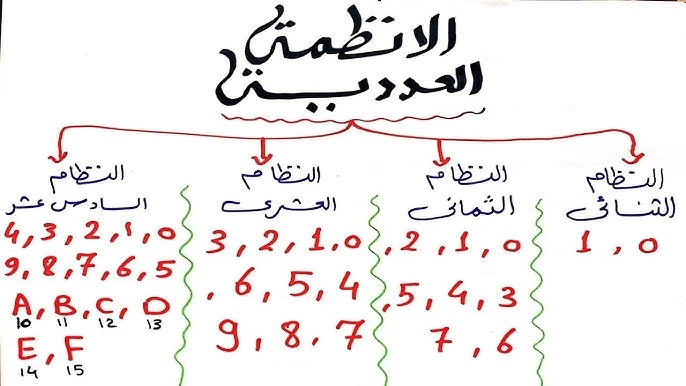 الانظمة
العددية
النظام
الثنائي
0, 1
النظام
الثماني
0, 1, 2,
3, 4, 5,
6, 7
النظام
العشري
0, 1, 2, 3
4, 5, 6,
7, 8, 9
النظام
السادس عشر
0, 1, 2, 3, 4
5, 6, 7, 8, 9
A, B, C, D
10 11 12 13
E, F
14 15